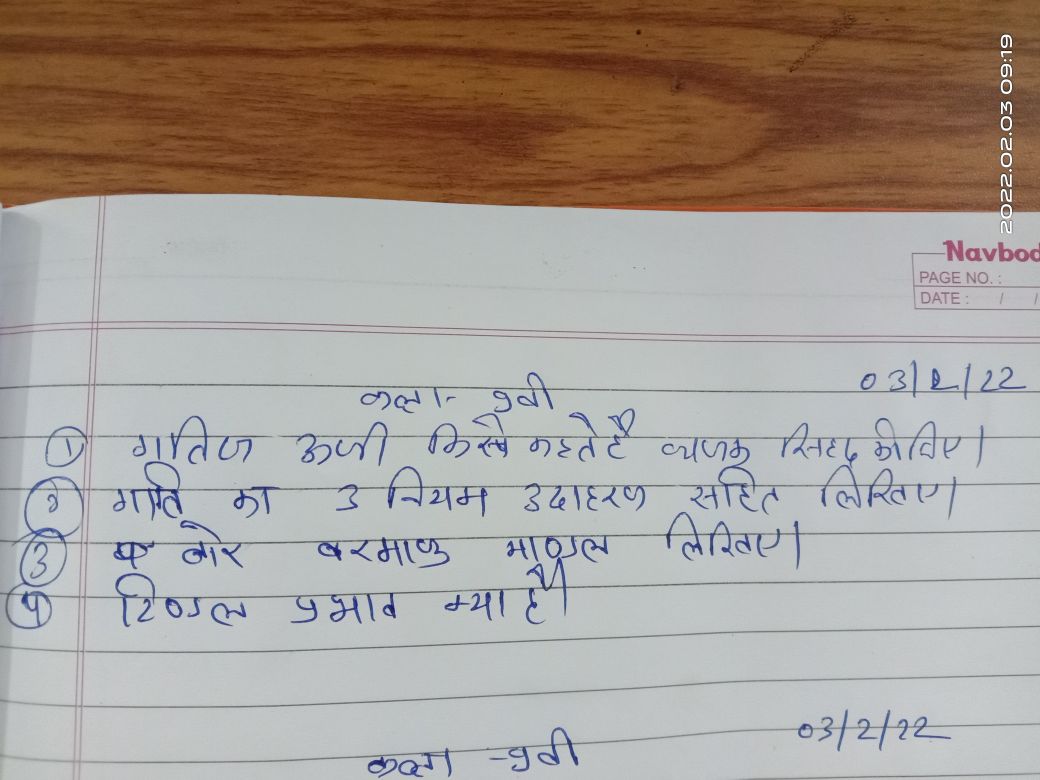 2022.02.03 09:19
Navbod
PAGE NO. :
DATE : / /
03/2/22
कक्षा- 9वी
① गतिज ऊर्जा किसे कहते है व्यंजक सिद्द कीजिए।
② गति का 3 नियम उदाहरण सहित लिखिए।
③ बोर परमाणु माण्डल लिखिए।
④ टिण्डल प्रभाव क्या है।
03/2/22
कक्षा -9वी